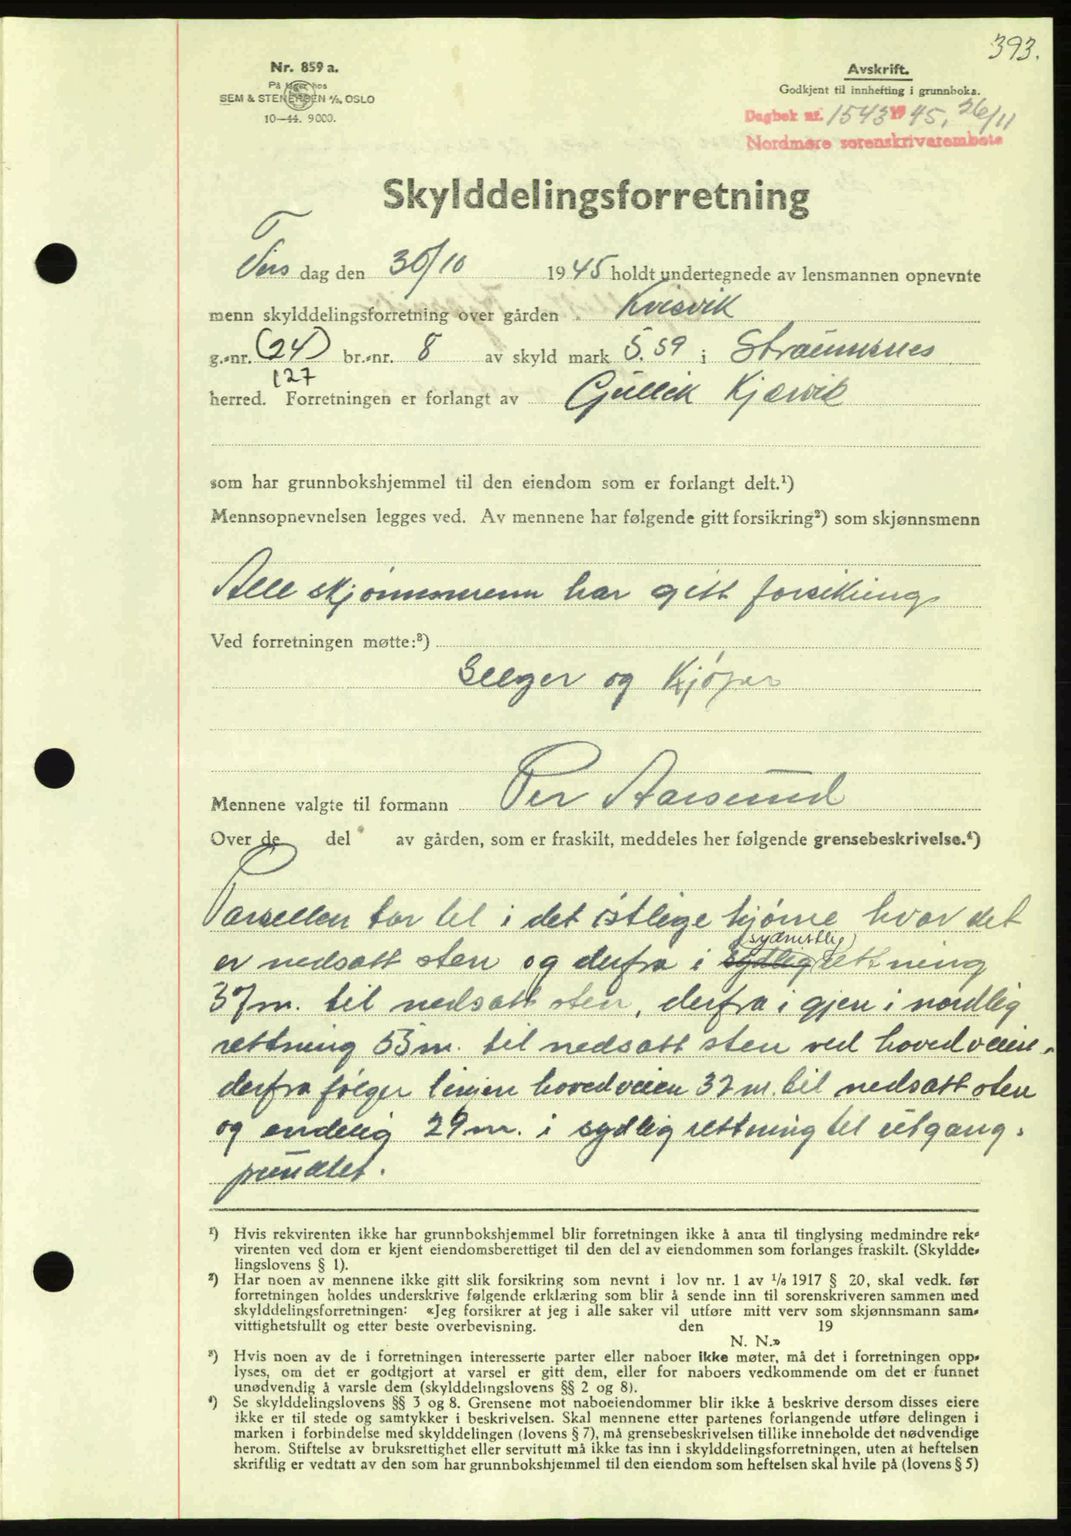 393.
Nr. 859 a.
På lager hos
SEM & STENERSEN A/S, OSLO
10—44. 9000.
Avskrift.
Godkjent til innhefting i grunnboka.
Dagbok nr. 1543 1945, 26/11
Nordmøre sorenskriverembete
Skylddelingsforretning
Tirs dag den 30/10 1945 holdt undertegnede av lensmannen opnevnte
menn skylddelingsforretning over gården Kvisvik
g.-nr. (24) br.-nr. 8 av skyld mark 5.59 i Straumsnes
127
herred. Forretningen er forlangt av Gullik Kjærvik
som har grunnbokshjemmel til den eiendom som er forlangt delt.¹)
Mennsopnevnelsen legges ved. Av mennene har følgende gitt forsikring²) som skjønnsmenn
Alle skjønnsmenn har gitt forsikring
Ved forretningen møtte:³)
Selger og Kjøper
Mennene valgte til formann Per Aarsund
Over de del av gården, som er fraskilt, meddeles her følgende grensebeskrivelse.⁴)
Parsellen tar til i det østlige hjørne hvor det
(sydvestlig)
er nedsatt sten og derfra i sydlig retning
37 m. til nedsatt sten, derfra i gjen i nordlig
rettning 53 m. til nedsatt sten ved hovedveien,
derfra følger linjen hovedveien 32 m. til nedsatt sten
og endelig 29 m. i sydlig rettning til utgang-
punktet.
¹) Hvis rekvirenten ikke har grunnbokshjemmel blir forretningen ikke å anta til tinglysing medmindre rek-
virenten ved dom er kjent eiendomsberettiget til den del av eiendommen som forlanges fraskilt. (Skyldde-
lingslovens § 1).
²) Har noen av mennene ikke gitt slik forsikring som nevnt i lov nr. 1 av 1/8 1917 § 20, skal vedk. før
forretningen holdes underskrive følgende erklæring som blir å sende inn til sorenskriveren sammen med
skylddelingsforretningen: «Jeg forsikrer at jeg i alle saker vil utføre mitt verv som skjønnsmann sam-
vittighetsfullt og etter beste overbevisning. den 19
N. N.»
³) Hvis noen av de i forretningen interesserte parter eller naboer ikke møter, må det i forretningen opp-
lyses, om det er godtgjort at varsel er gitt dem, eller for naboers vedkommende om det er funnet
unødvendig å varsle dem (skylddelingslovens §§ 2 og 8).
⁴) Se skylddelingslovens §§ 3 og 8. Grensene mot naboeiendommer blir ikke å beskrive dersom disses eiere
ikke er til stede og samtykker i beskrivelsen. Skal mennene etter partenes forlangende utføre delingen i
marken i forbindelse med skylddelingen (lovens § 7), må grensebeskrivelsen tillike inneholde det nødvendige
herom. Stiftelse av bruksrettighet eller servitutt må ikke tas inn i skylddelingsforretningen, uten at heftelsen
skriftlig er vedtatt av den som har grunnbokshjemmel til den eiendom som heftelsen skal hvile på (lovens § 5)